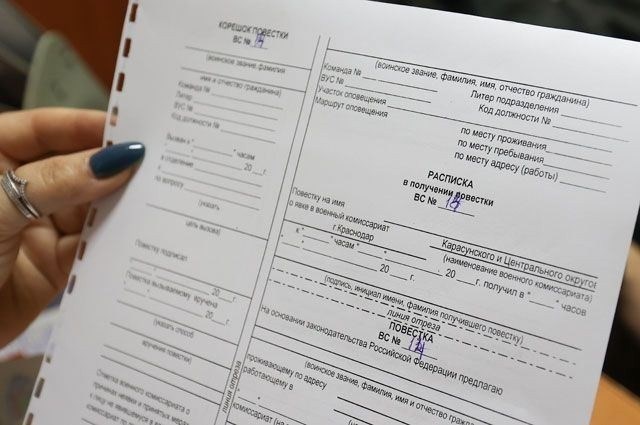 КОРЕШОК ПОВЕСТКИ
ВС №
(воинское звание, фамилия
имя и отчество гражданина)
Команда №
Литер
ВУС №
Код должности №
Вызван к " " часам
" " 20 г.
в отделение
по вопросу
(указать
цель вызова)
Повестку подписал
" " 20 г.
Повестка вызываемому вручена
" " 20 г.
(указать способ
вручения повестки)
Отметка военного комиссариата о
причинах неявки и принятых мерах
линия отреза
(воинское звание, фамилия, имя, отчество гражданина)
Команда №
ВУС №
Участок оповещения
Маршрут оповещения
Литер подразделения
Код должности №
по месту проживания
по месту пребывания
по месту адресу (работы)
РАСПИСКА
в получении повестки
ВС №
Повестку на имя
о явке в военный комиссариат
г.Краснодар
Карасунского и Центрального округов
(наименование военного комиссариата)
к " " часам " " 20 г.
" " 20 г. получил в " " часов
(подпись, инициал имени, фамилия получившего повестку)
линия отреза
ПОВЕСТКА
ВС №
На основании законодательства Российской Федерации предлагаю
(воинское звание, фамилия, имя и отчество гражданина)
проживающему по адресу
работающему в